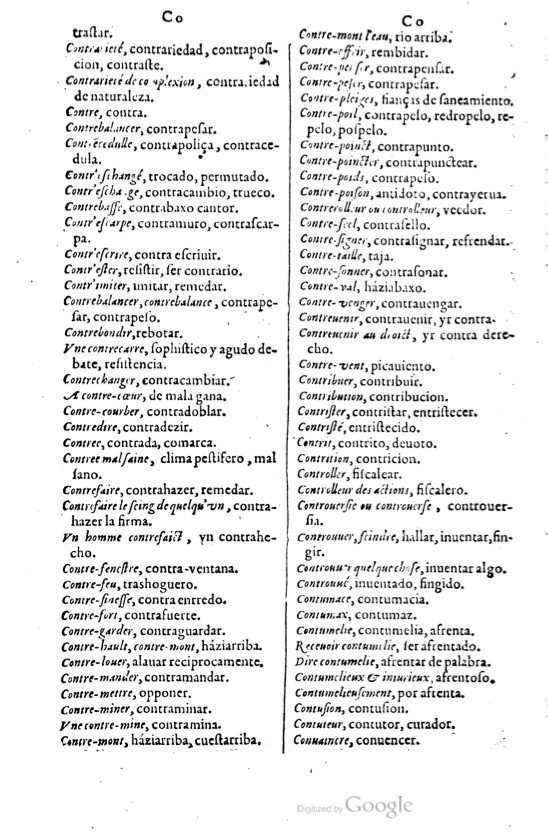 Co
traſtar.
Contrarieté, contrariedad, contrapoſi-
cion, contraſte.
Contrarieté de complexion, contrariedad
de naturaleza.
Contre, contra.
Contrebalancer, contrapeſar.
Contrecedulle, contrapoliça, contrace-
dula.
Contr'eſchangé, trocado, permutado.
Contr'eſchange, contracambio, trueco.
Contrebaſſe, contrabaxo cantor.
Contr'eſcarpe, contramuro, contraſcar-
pa.
Contr'eſcrire, contra eſcriuir.
Contr'eſter, reſiſtir, ſer contrario.
Contr'imiter, imitar, remedar.
Contrebalancer, contrebalance, contrape-
ſar, contrapeſo.
Contrebondir, rebotar.
Vne contrecarre, ſophiſtico y agudo de-
bate, reſiſtencia.
Contrechanger, contracambiar.
A contre-cœur, de mala gana.
Contre-courber, contradoblar.
Contredire, contradezir.
Contree, contrada, comarca.
Contree malſaine, clima peſtifero, mal
ſano.
Contrefaire, contrahazer, remedar.
Contrefaire le ſeing de quelqu'vn, contra-
hazer la firma.
Vn homme contrefaict, vn contrahe-
cho.
Contre-feneſtre, contra-ventana.
Contre-feu, trashoguero.
Contre-fineſſe, contra enredo.
Contre-fort, contrafuerte.
Contre-garder, contraguardar.
Contre-hault, contre-mont, háziarriba.
Contre-louer, alauar reciprocamente.
Contre-mander, contramandar.
Contre-mettre, opponer.
Contre-miner, contraminar.
Vne contre-mine, contramina.
Contre-mont, háziarriba, cueſtarriba.
Co
Contre-mont l'eau, rio arriba.
Contre-offrir, rembidar.
Contre-penſer, contrapenſar.
Contre-peſer, contrapeſar.
Contre-pleiges, fianças de ſaneamiento.
Contre-poil, contrapelo, redropelo, re-
pelo, poſpelo.
Contre-poinct, contrapunto.
Contre-poincter, contrapunctear.
Contre-poids, contrapeſo.
Contre-poiſon, antidoto, contrayerua.
Contrerolleur ou controlleur, veedor.
Contre-ſeel, contraſello.
Contre-ſigner, contraſignar, refrendar.
Contre-taille, taja.
Contre-ſonner, contraſonar.
Contre-val, háziabaxo.
Contre-venger, contrauengar.
Contreuenir, contrauenir, yr contra.
Contreuenir au droict, yr contra dere-
cho.
Contre-vent, picauiento.
Contribuer, contribuir.
Contribution, contribucion.
Contriſter, contriſtar, entriſtecer.
Contriſté, entriſtecido.
Contrit, contrito, deuoto.
Contrition, contricion.
Controller, fiſcalear.
Controlleur des actions, fiſcalero.
Controuerſie ou controuerſe, controuer-
ſia.
Controuuer, feindre, hallar, inuentar, fin-
gir.
Controuuer quelque choſe, inuentar algo.
Controuué, inuentado, fingido.
Contumace, contumacia.
Contumax, contumaz.
Contumelie, contumelia, afrenta.
Receuoir contumelie, ſer afrentado.
Dire contumelie, afrentar de palabra.
Contumelieux & iniurieux, afrentoſo.
Contumelieuſement, por afrenta.
Contuſion, contuſion.
Contuteur, contutor, curador.
Conuaincre, conuencer.
Digitized by Google